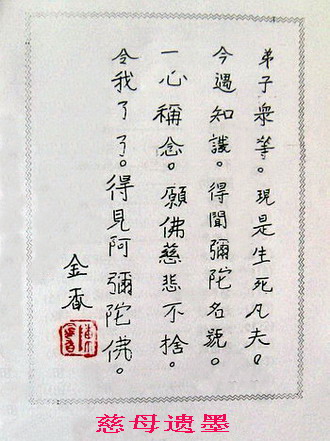 弟子眾等。現是生死凡夫。
今遇知識。得聞彌陀名號。
一心稱念。願佛慈悲不捨。
令我了了。得見阿彌陀佛。
金香
慈母遗墨